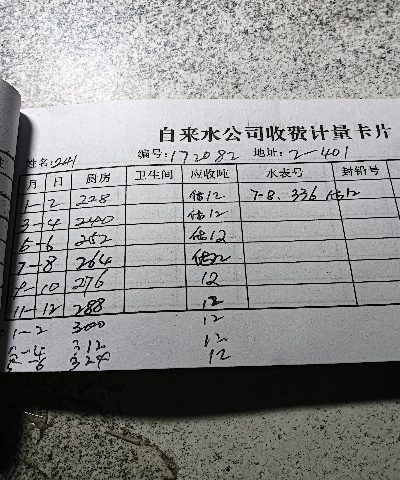 自来水公司收费计量卡片
姓名:241 编号:172082 地址:2-401
月 日 厨房 卫生间 应收吨 水表号 封铅号
1-2 228 估12 7-8. 336 估12
3-4 240 估12
5-6 252 估12
7-8 264 估12
9-10 276 12
11-12 288 12
1-2 300 12
3-4 312 12
5-6 324 12